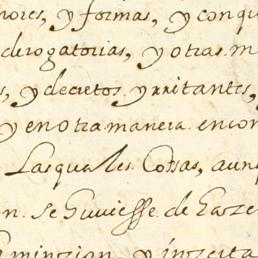 nores, y formas, y conqu
derogatorias, y otras m
s, y decretos yrritantes,
y en otra manera encon
Las quales Cossas, aunq
n. Se huuiesse. de haze
y